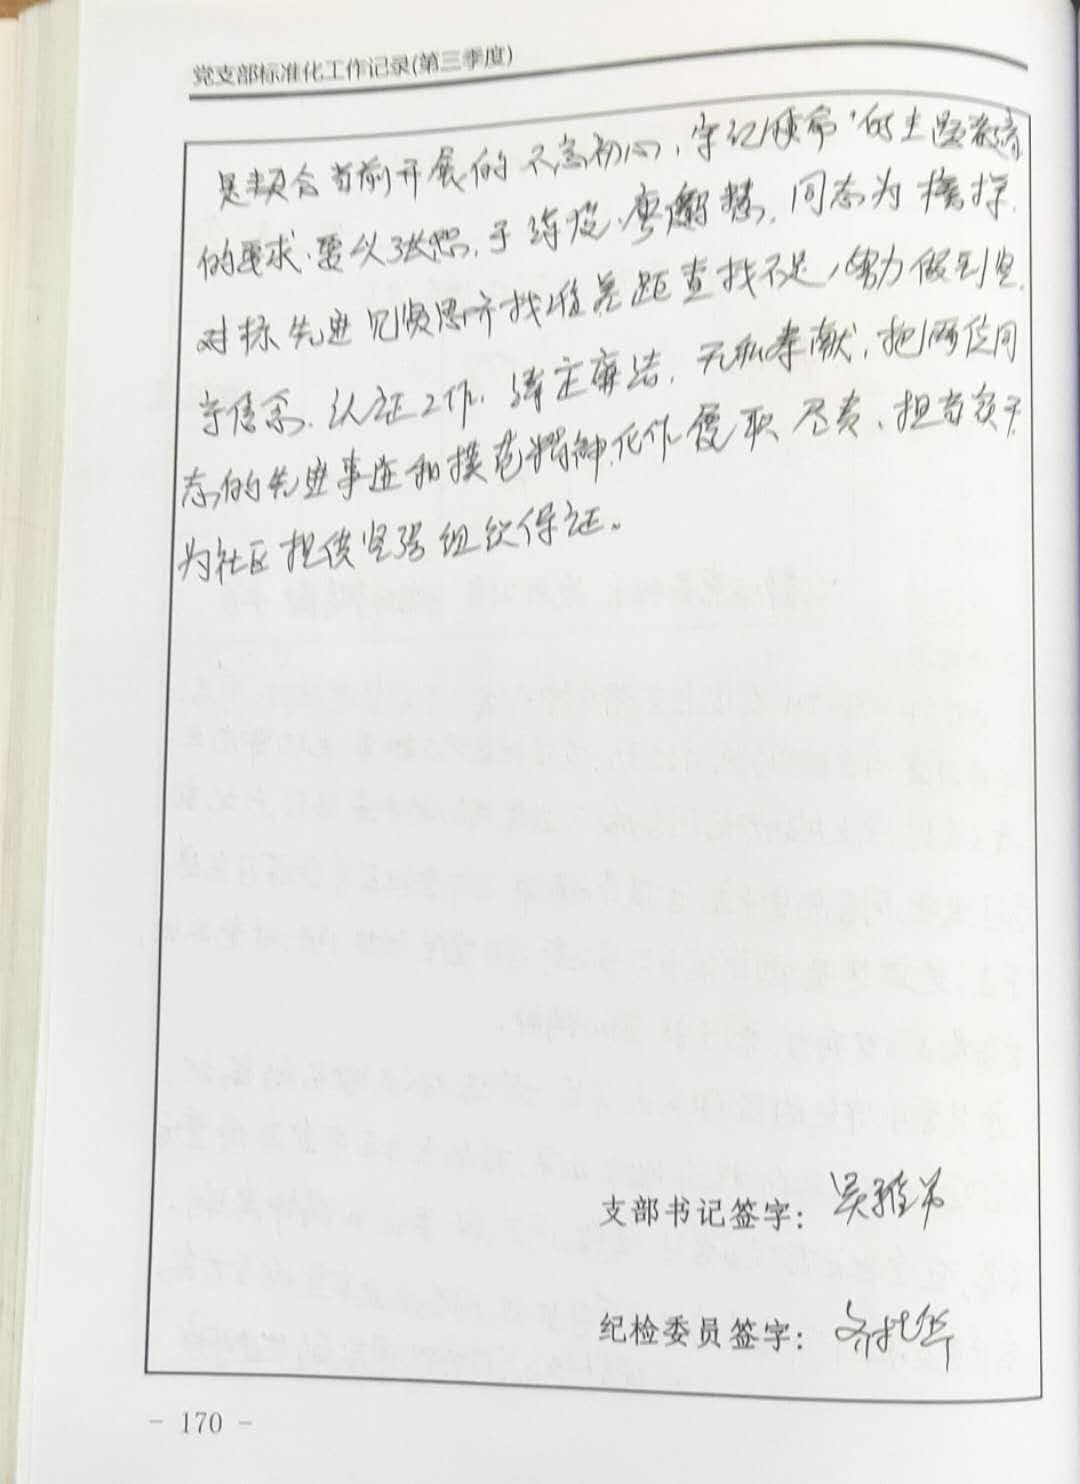 党支部标准化工作记录(第三季度)
是契合当前开展的不忘初心,牢记使命'的主题教育
的要求.要以张 同志为榜样.
对标先进见贤思齐找准差距查找不足,努力做到坚
守信念.认证工作.清正廉洁.无私奉献,把两位同
志的先进事迹和模范精神.化作履职尽责、担当
为社区提供坚强组织保证。
支部书记签字:吴
纪检委员签字:华
- 170 -